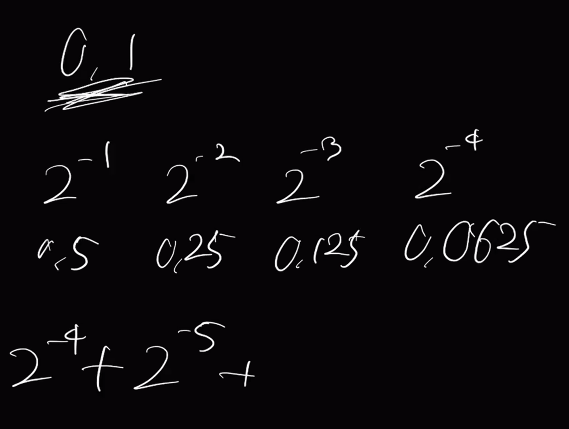 0,1
2^-1 2^-2 2^-3 2^-4
0,5 0,25 0,125 0,0625
2^-4 + 2^-5 +